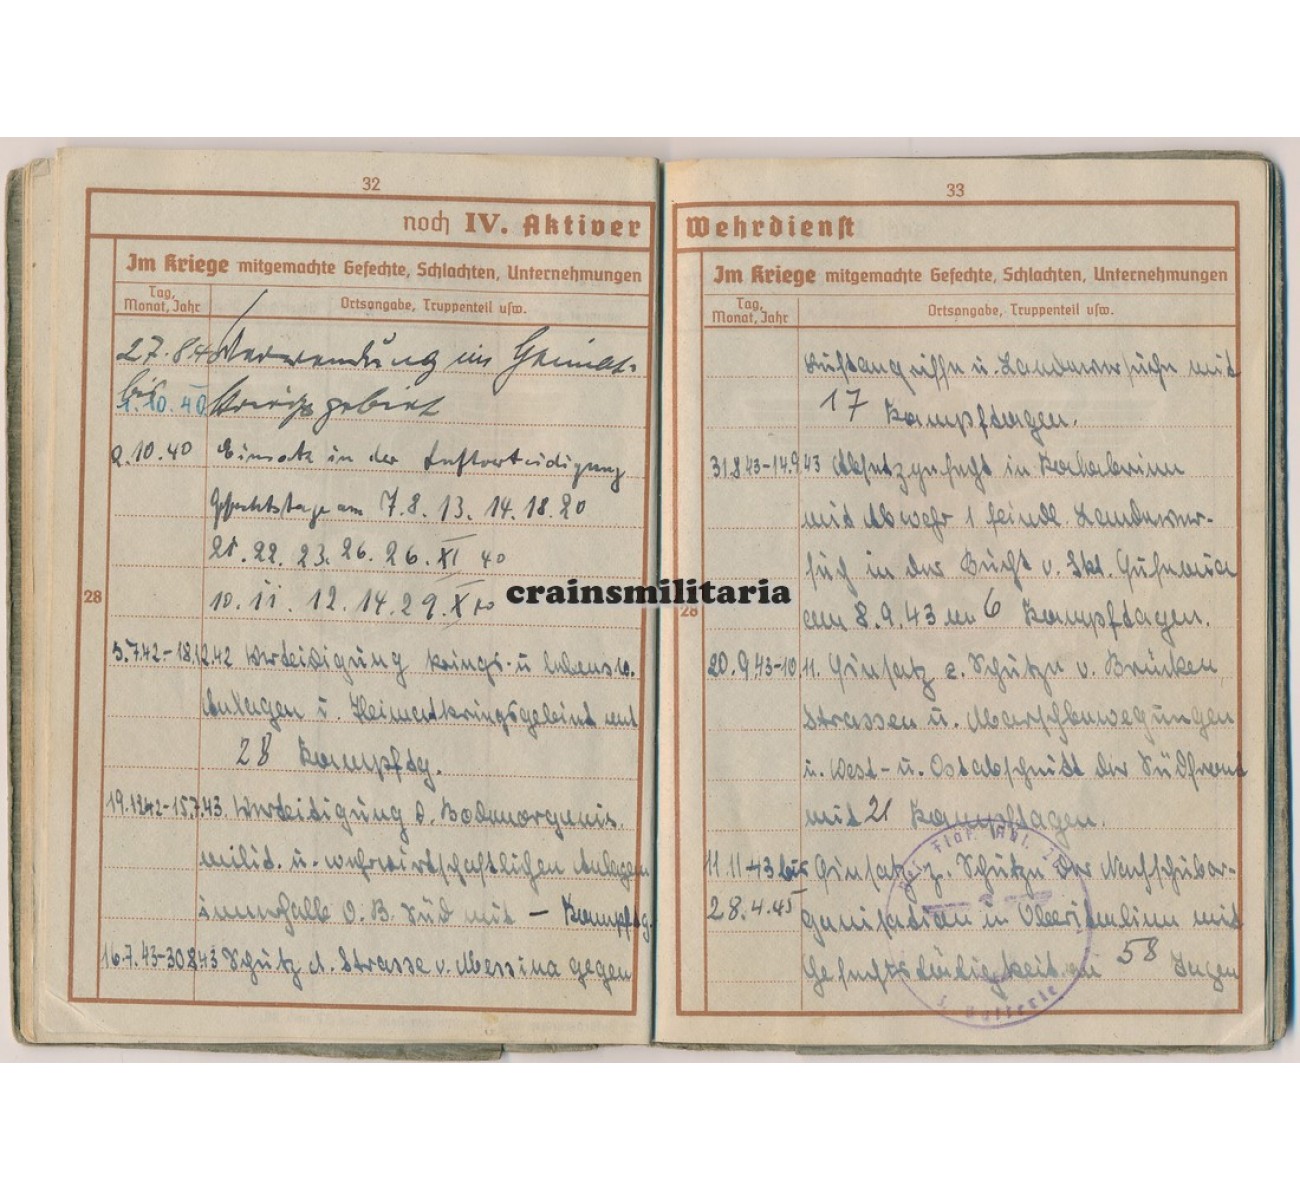 32
noch IV. Aktiver
Im Kriege mitgemachte Gefechte, Schlachten, Unternehmungen
Tag, Monat, Jahr
Ortsangabe, Truppenteil usw.
27.8.40 Verwendung im Heimat-
bis
1.10.40 Kriegsgebiet
2.10.40 Einsatz in der Luftverteidigung
Gefechtstage am 7.8.13.14.18.20
21.22.23.26.26.XI 40
28
10.11.12.14.29.X 40
5.7.42-18.12.42 Verteidigung kriegs- u. lebensw.
Anlagen i. Heimatkriegsgebiet mit
28 Kampftg.
19.12.42-15.7.43 Verteidigung d. Bodenorganis.
milit. u. wehrwirtschaftlichen Anlagen
innerhalb O.B. Süd mit – Kampftg.
16.7.43-30.8.43 Schutz d. Strasse v. Messina gegen
33
Wehrdienst
Im Kriege mitgemachte Gefechte, Schlachten, Unternehmungen
Tag, Monat, Jahr
Ortsangabe, Truppenteil usw.
Luftangriffe u. Landeversuche mit
17 Kampftagen.
31.8.43-14.9.43 Absetzgefecht in Kalabrien
mit Abwehr 1 feindl. Landever-
such in der Bucht v. Skt. Eufemia
28
am 8.9.43 an 6 Kampftagen.
20.9.43-10.11. Einsatz z. Schutze v. Brücken,
Strassen u. Marschbewegungen
i. West- u. Ostabschnitt der Südfront
mit 21 Kampftagen.
11.11.43 bis Einsatz z. Schutze der Nachschubor-
28.4.45 ganisation in Oberitalien mit
Gefechtstätigkeit an 58 Tagen
Flak. Abt.
Batterie
crainsmilitaria